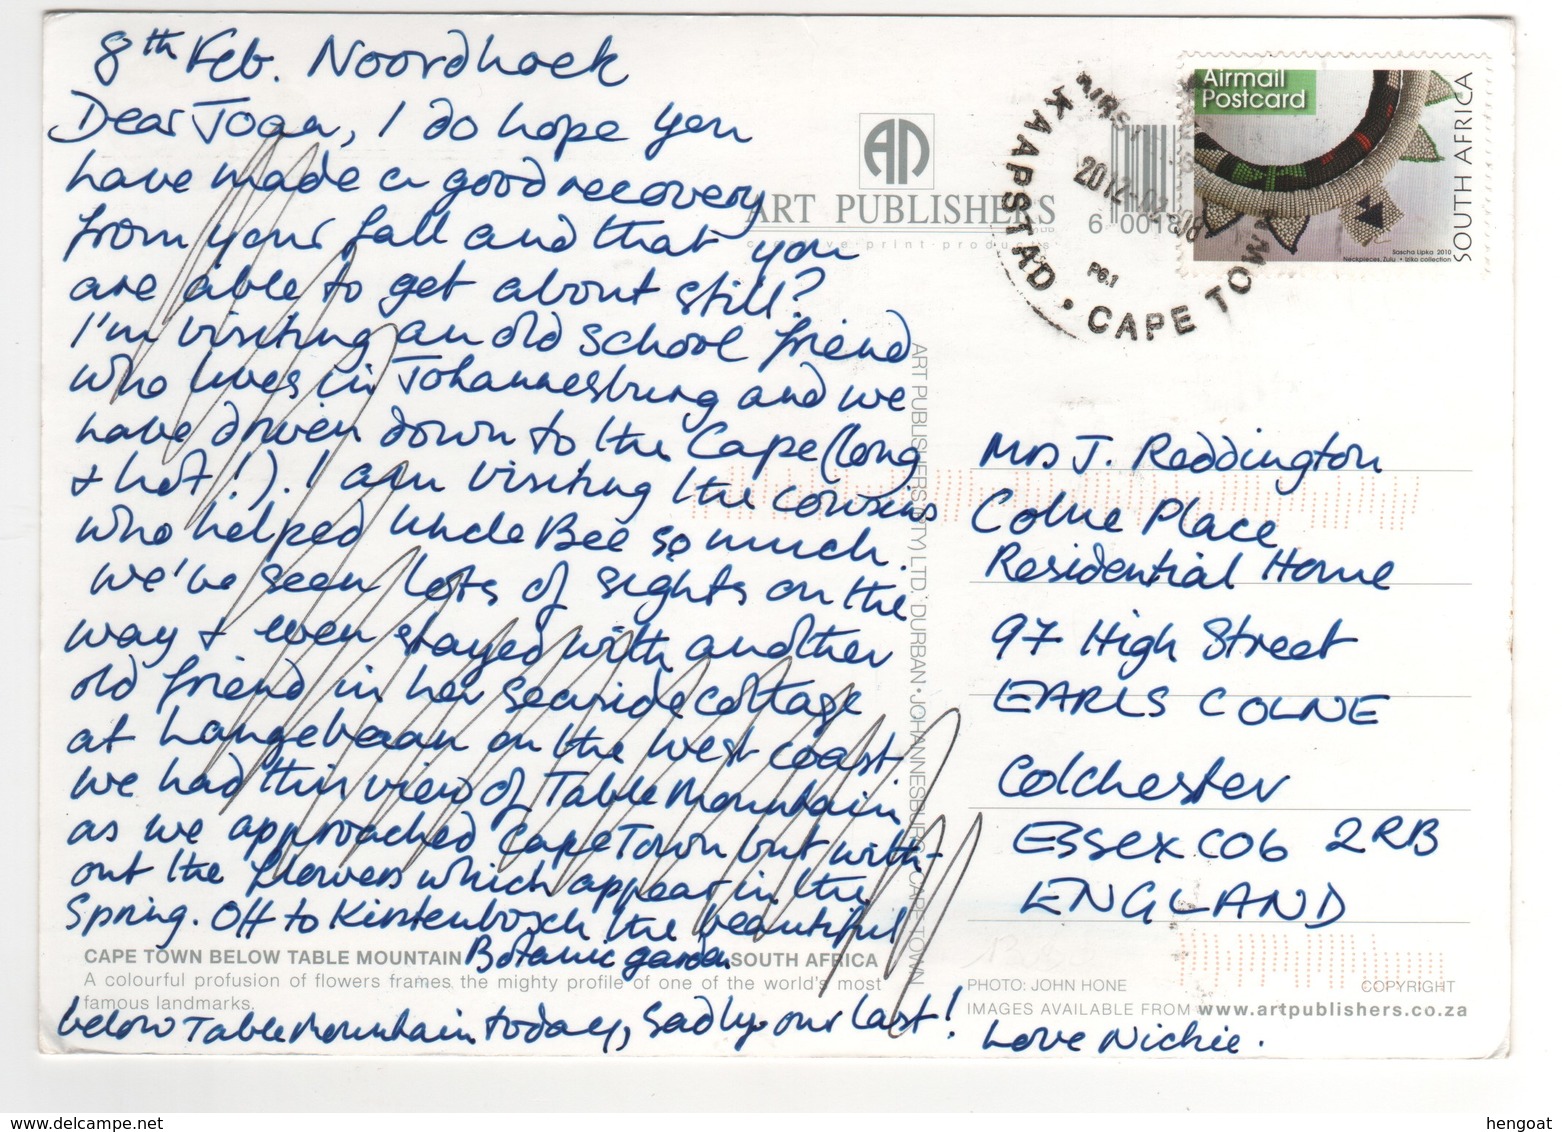 8th Feb. Noordhoek
Dear Joga, I do hope you
have made a good recovery
from your fall and that you
are able to get about still?
I'm visiting an old school friend
who lives in Johannesburg and we
have driven down to the Cape (long
& hot!). I am visiting the cousins
who helped Uncle Bee so much.
We've seen lots of sights on the
way & even stayed with another
old friend in her seaside cottage
at Langebaan on the West coast.
We had this view of Table Mountain
as we approached Cape Town but with-
out the flowers which appear in the
Spring. Off to Kirstenbosch the beautiful
Botanic garden
below Table Mountain today, sadly our last!
Love Nickie.
CAPE TOWN BELOW TABLE MOUNTAIN
SOUTH AFRICA
A colourful profusion of flowers frames the mighty profile of one of the world's most
famous landmarks.
AP
ART PUBLISHERS
creative print products
ART PUBLISHERS (PTY) LTD. DURBAN • JOHANNESBURG • CAPE TOWN
6 00180
KAAPSTAD • CAPE TOWN
2012-02-08
P6.1
Airmail
Postcard
SOUTH AFRICA
Sascha Lipka 2010
Neckpieces, Zulu • Iziko collection
Mrs J. Reddington
Colne Place
Residential Home
97 High Street
EARLS COLNE
Colchester
Essex CO6 2RB
ENGLAND
PHOTO: JOHN HONE
COPYRIGHT
IMAGES AVAILABLE FROM www.artpublishers.co.za
www.delcampe.net
hengoat